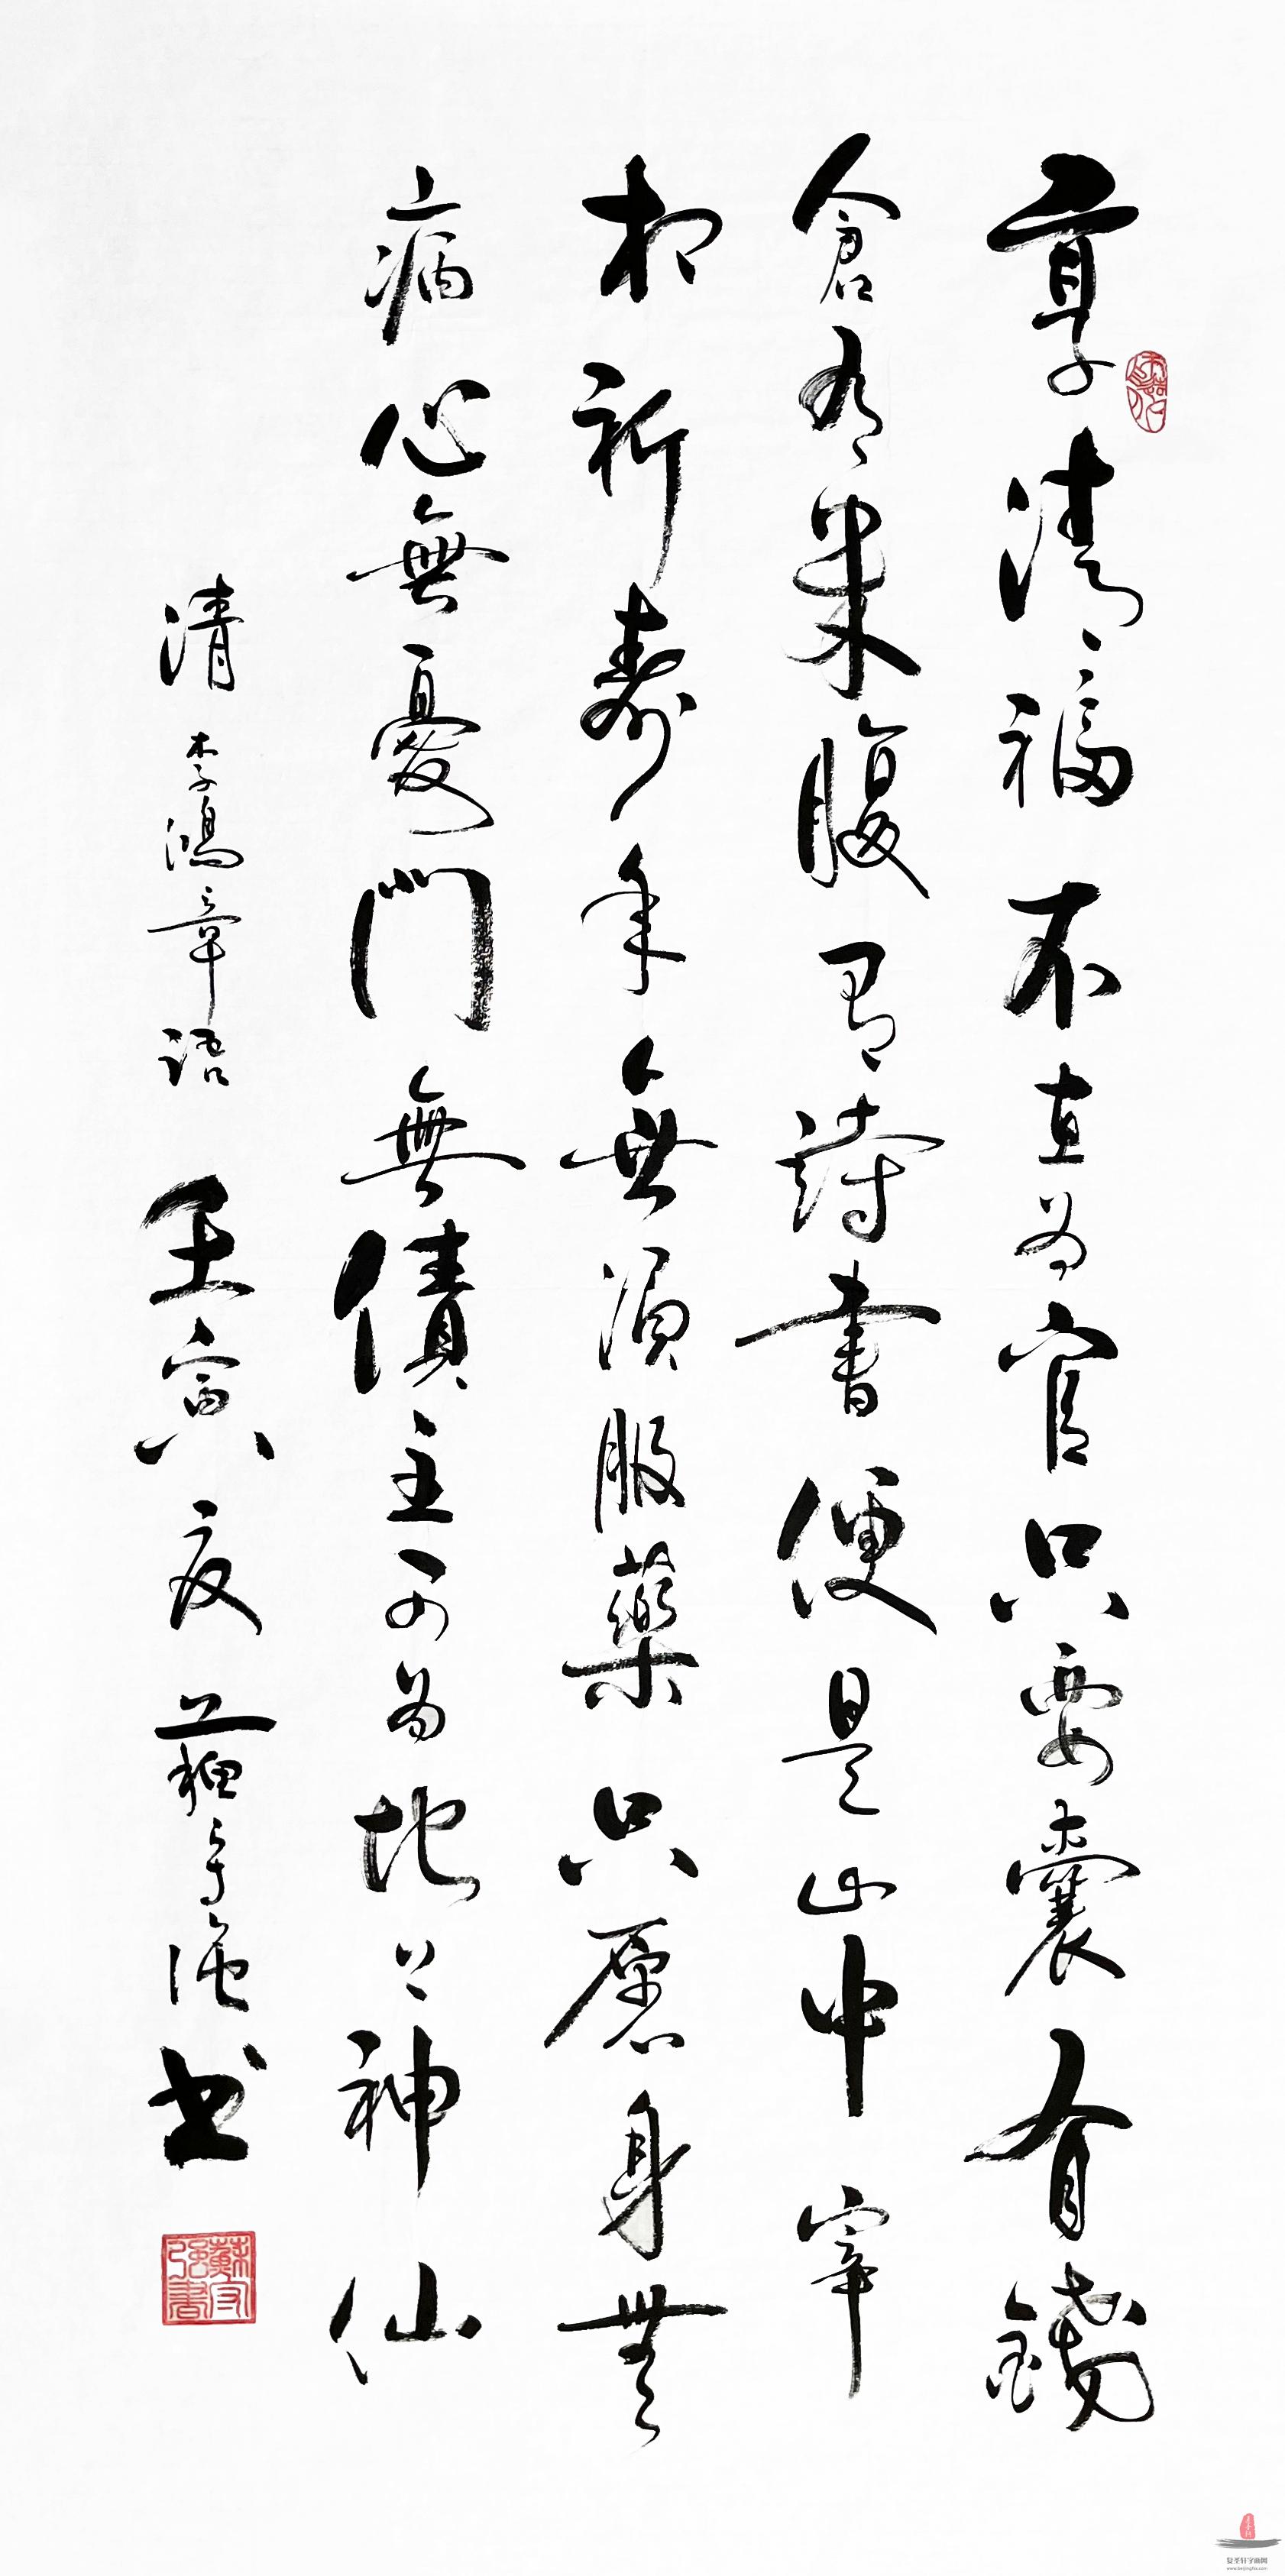 享清福不在為官只要囊有錢
倉有米腹有詩書便是山中宰
相祈壽年無須服藥只愿身無
病心無憂門無債主可為地上神仙
清李鴻章語 壬寅夏 蘇守强书
蘇守强書